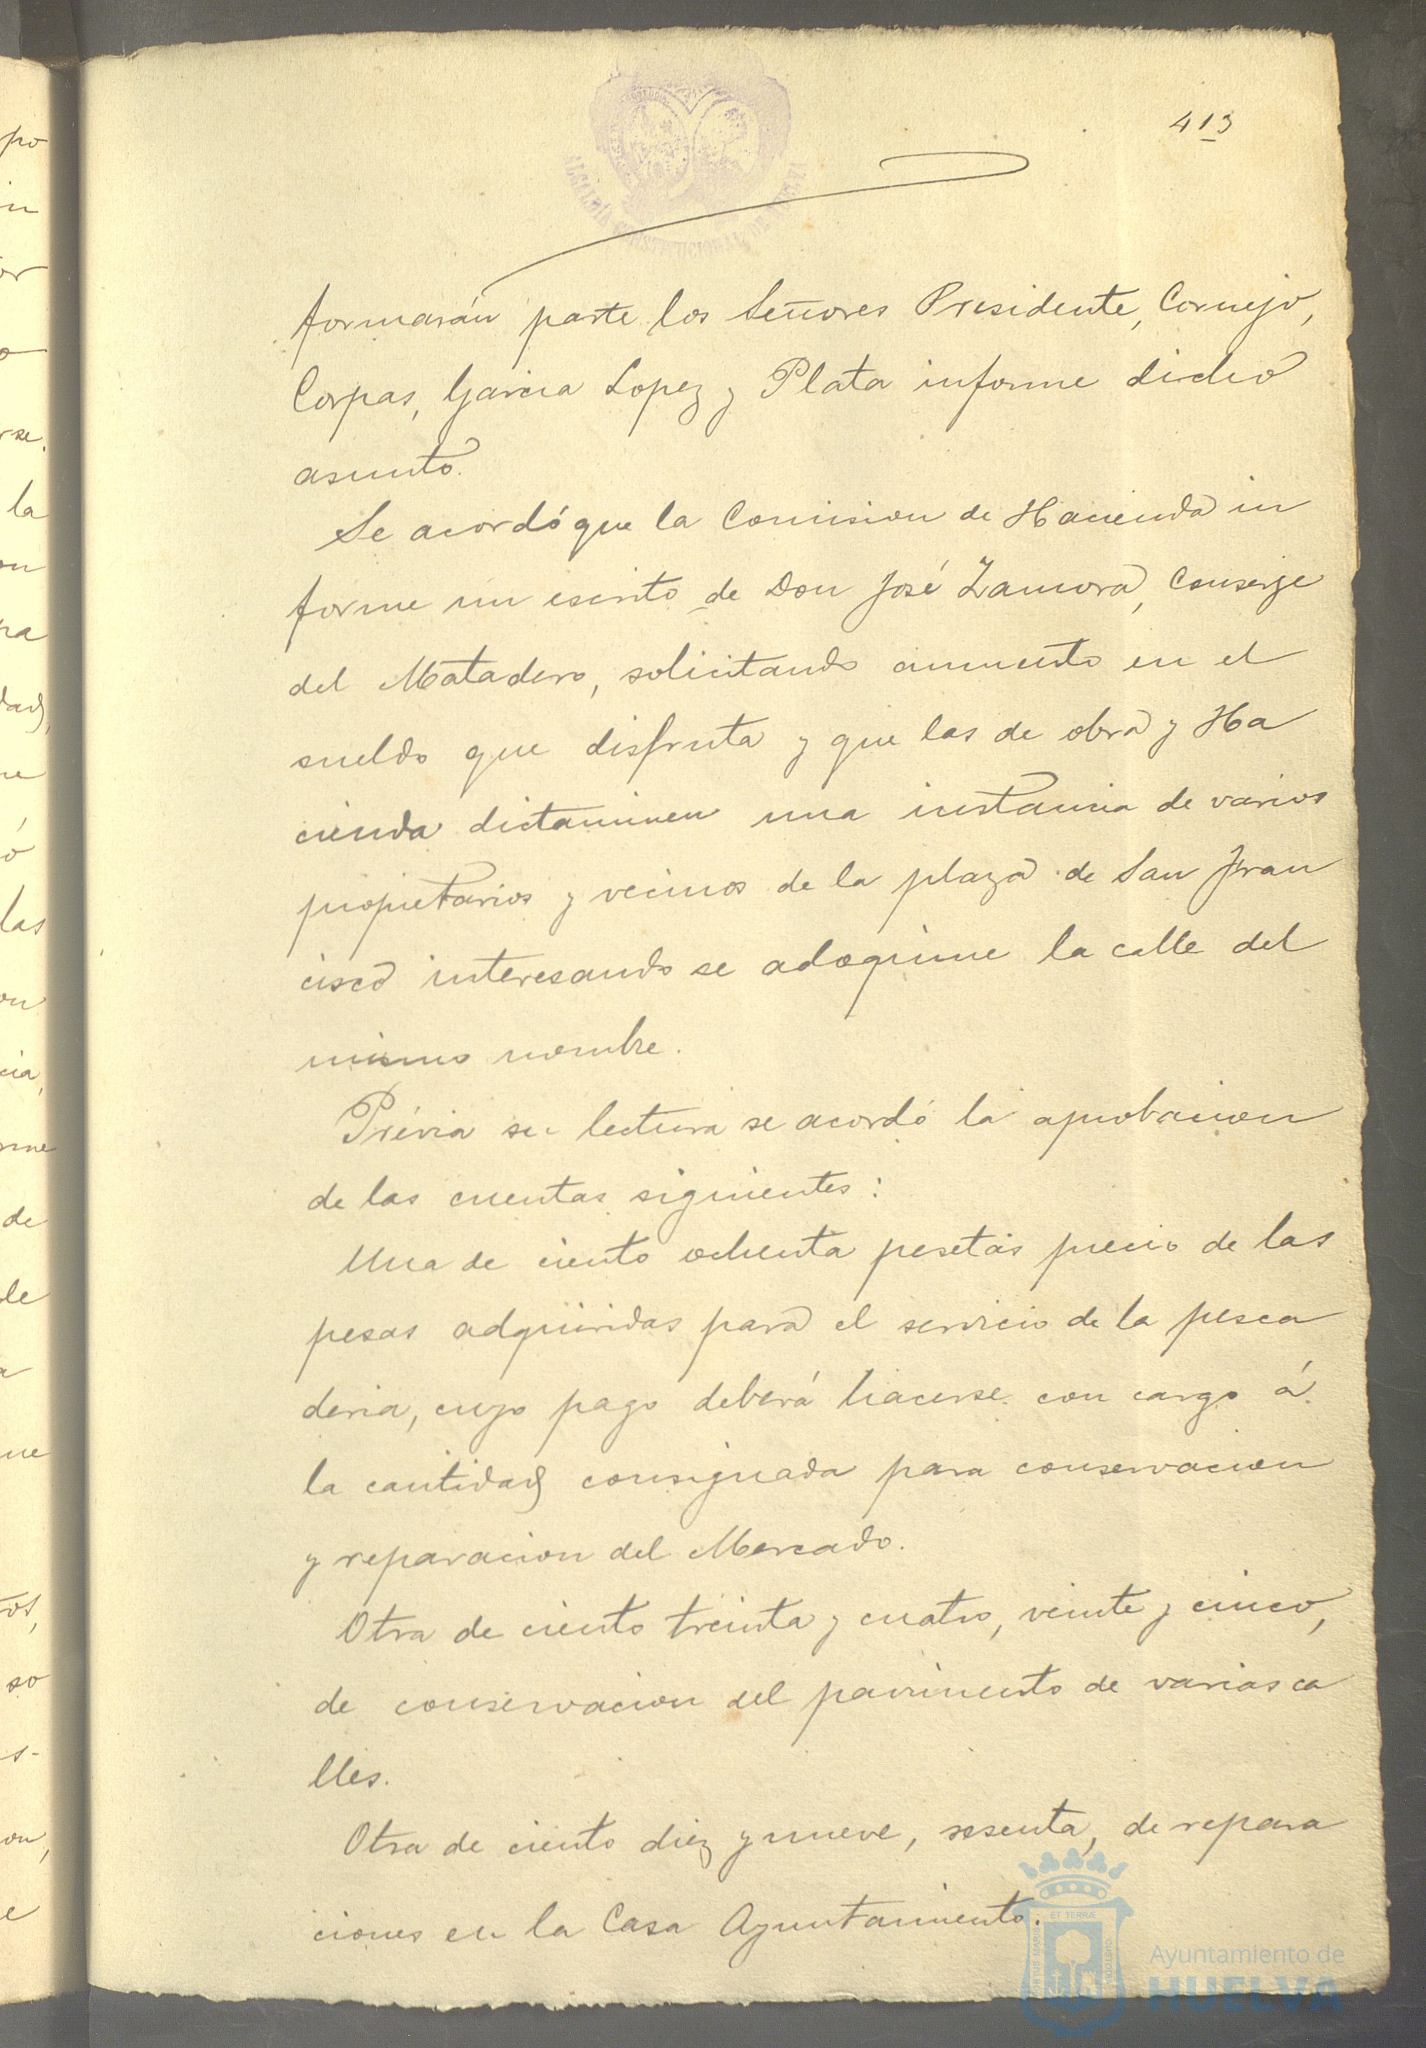 413
ALCALDÍA CONSTITUCIONAL DE HUELVA
formarán parte los Señores Presidente, Cornejo,
Corpas, Garcia Lopez y Plata informe dicho
asunto.
Se acordó que la Comision de Hacienda in
forme un escrito de Don José Zamora, Conserje
del Matadero, solicitando aumento en el
sueldo que disfruta y que las de obra y Ha
cienda dictaminen una instancia de varios
propietarios y vecinos de la plaza de San Fran
cisco interesando se adoquine la calle del
mismo nombre.
Prévia su lectura se acordó la aprobacion
de las cuentas siguientes:
Una de ciento ochenta pesetas precio de las
pesas adquiridas para el servicio de la pesca
deria, cuyo pago deberá hacerse con cargo á
la cantidad consignada para conservacion
y reparacion del Mercado.
Otra de ciento treinta y cuatro, veinte y cinco,
de conservacion del pavimento de varias ca
lles.
Otra de ciento diez y nueve, sesenta, de repara
ciones en la Casa Ayuntamiento.
Ayuntamiento de
HUELVA
po
in
or
o
rse.
la
on
na
dad,
ue
ó
las
on
cia,
rme
de
de
a
ue
tos,
so
s-
on,
e